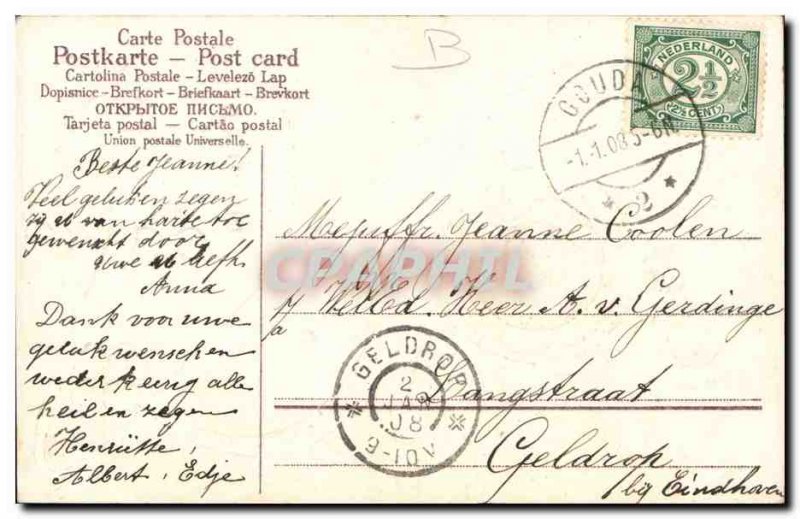 Carte Postale
Postkarte – Post card
Cartolina Postale – Levelező Lap
Dopisnice – Brefkort – Briefkaart – Brevkort
ОТКРЫТОЕ ПИСЬМО.
Tarjeta postal – Cartão postal
Union postale Universelle.
B
NEDERLAND
2½
(2½ CENT)
GOUDA
-1.1.08 5-6N
2
Beste Jeanne!
Veel geluk en zegen
zij u van harte toe
gewenscht door
Uwe liefh.
Anna
Dank voor uwe
gelukwenschen
wederkeerig alle
heil en zegen
Henriette,
Albert, Edje
Mejuffr. Jeanne Coolen
WelEd. Heer A. v. Gerdinge
Langstraat
Geldrop
bij Eindhoven
GELDROP
2
JAN
08
9-10V
CPAPHIL